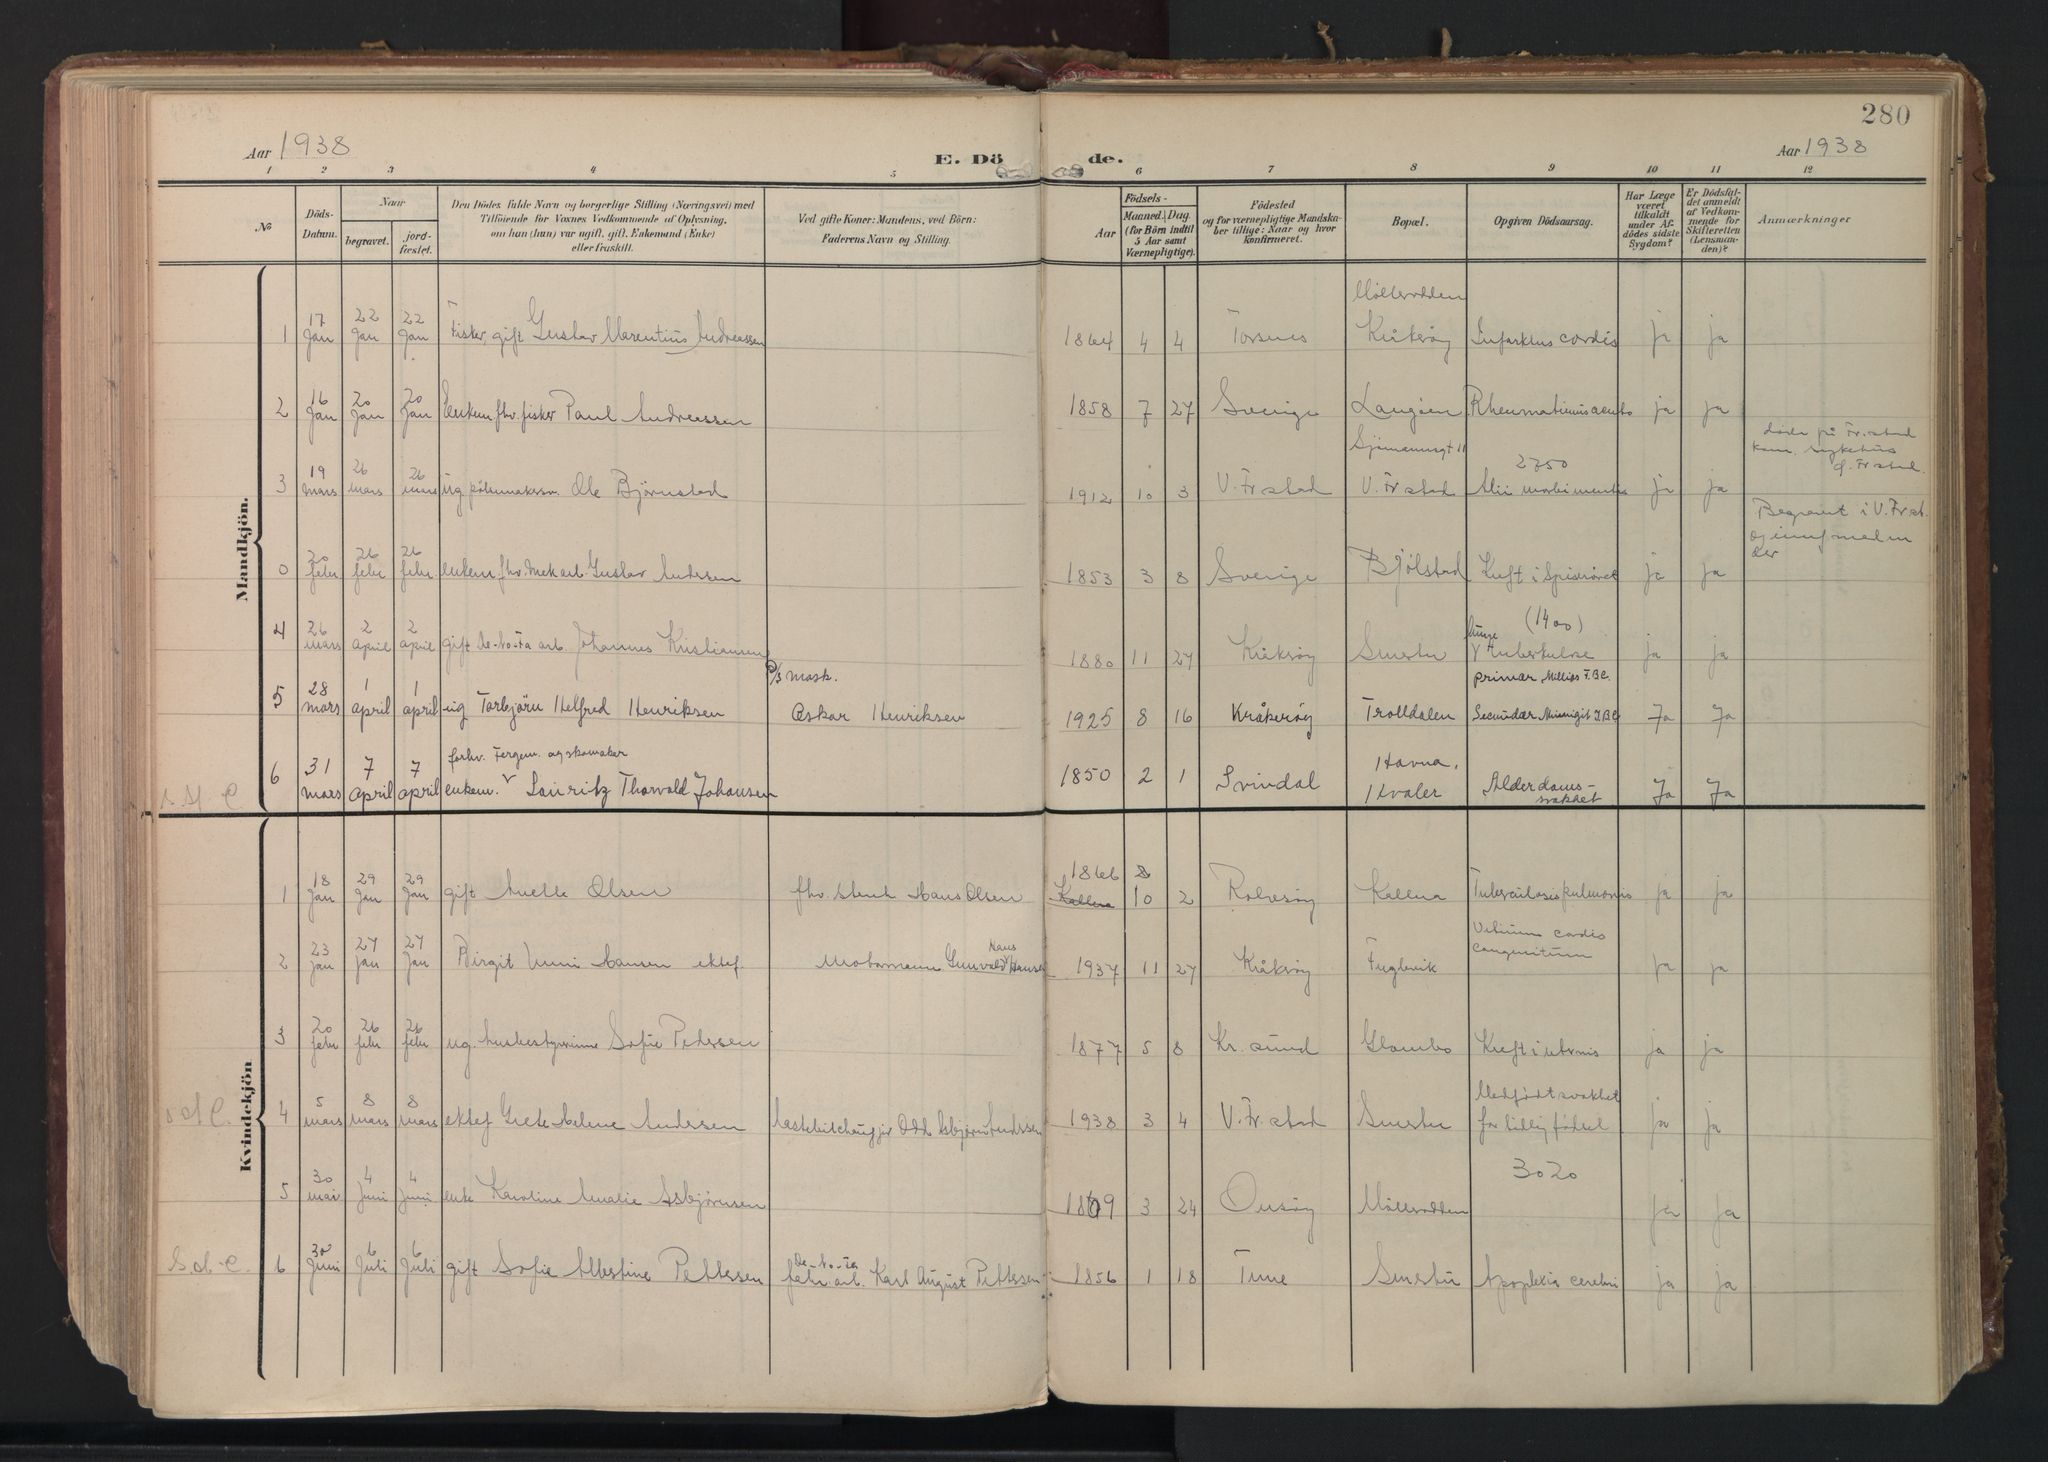 280
Aar 1938
E. Dö de.
Aar 1938
1 2 3 4 5 6 7 8 9 10 11 12
No
Döds-
Datum.
Naar
begravet.
jord-
fæstet.
Den Dödes fulde Navn og borgerlige Stilling (Næringsvei) med
Tilföiende for Voxnes Vedkommende af Oplysning,
om han (hun) var ugift, gift, Enkemand (Enke)
eller fraskilt.
Ved gifte Koner: Mandens, ved Börn:
Faderens Navn og Stilling.
Födsels-
Aar
Maaned. Dag.
(for Börn indtil
5 Aar samt
Værnepligtige).
Födested
og for værnepligtige Mandska-
ber tillige: Naar og hvor
konfirmeret.
Bopæl.
Opgiven Dödsaarsag.
Har Læge
været
tilkaldt
under Af-
dödes sidste
Sygdom?
Er Dödsfal-
det anmeldt
af Vedkom-
mende for
Skifteretten
(Lensman-
den)?
Anmærkninger
Mandkjön.
Möllerodden
1 17 Jan 22 Jan 22 Jan Fisker, gift Gustav Marentius Andreassen 1864 4 4 Torsnes Kråkeröy Infarktus cordis ja ja
2 16 Jan 20 Jan 20 Jan Enkem. fhv. fisker Paul Andreassen 1858 7 27 Sverige Langöen Rheumatismus ja ja
Döde på Fr.stad
kom. sykehus
Fr.stad.
3 19 mars 26 mars 26 mars ug pölsemakersv. Ole Björnstad 1912 10 3 V. Fr stad V. Fr stad 2750 Alii morbi mentis ja ja
Begravet i V. Fr.st.
der
0 20 febr 26 febr 26 febr. enkem. fhv. mek arb. Gustav Andersen 1853 3 8 Sverige Bjølstad Kreft i Spiserøret ja ja
(1400)
4 26 mars 2 april 2 april gift De-No-Fa arb. Johannes Kristiansen 1880 11 27 Kråkeröy Smertu lunge tuberkulose ja ja
P/s mask. primær Millias T.B.C.
5 28 mars 1 april 1 april ug Torbjörn Helfred Henriksen Oskar Henriksen 1925 8 16 Kråkeröy Trolldalen Secundær Miningit T.B.C. Ja Ja
forhv. Fergem. og skomaker
6 31 mars 7 april 7 april enkem. Lauritz Thorvald Johansen 1850 2 1 Svindal Havna, Hvaler Alderdoms-
svakhet Ja Ja
Kvindekjön
1866 8
1 18 Jan 29 Jan 29 Jan gift Anette Olsen fhv. stenh Hans Olsen Kallera 10 2 Rolvsöy Kallera Tuberculosis pulmonis ja ja
Vitium cordis
congenitum
2 23 jan 27 jan 27 Jan Birgit Unni Hansen ektef. Motormann Gunvald Hans Hansen 1937 11 27 Kråkeröy Fuglevik ja ja
3 20 febr 26 febr 26 febr ug. husbestyrerinne Sofie Pedersen 1877 5 8 Kr. sund Glombo Kreft i uterus ja ja
Medfödt svakhet
4 5 mars 8 mars 8 mars ektef Grete Helene Andersen Odd Asbjörn Andersen 1938 3 4 V. Fr. stad Smertu for tidlig födsel ja ja
3020
5 30 mai 4 Juni 4 Juni enke Karoline Amalie Asbjörnsen 1869 3 24 Onsöy Möllerodden ja ja
De-No-Fa
6 30 Juni 6 Juli 6 Juli gift Sofie Albertine Pettersen fabr. arb. Karl August Pettersen 1856 1 18 Tune Smertu Apoplexia cerebri ja ja